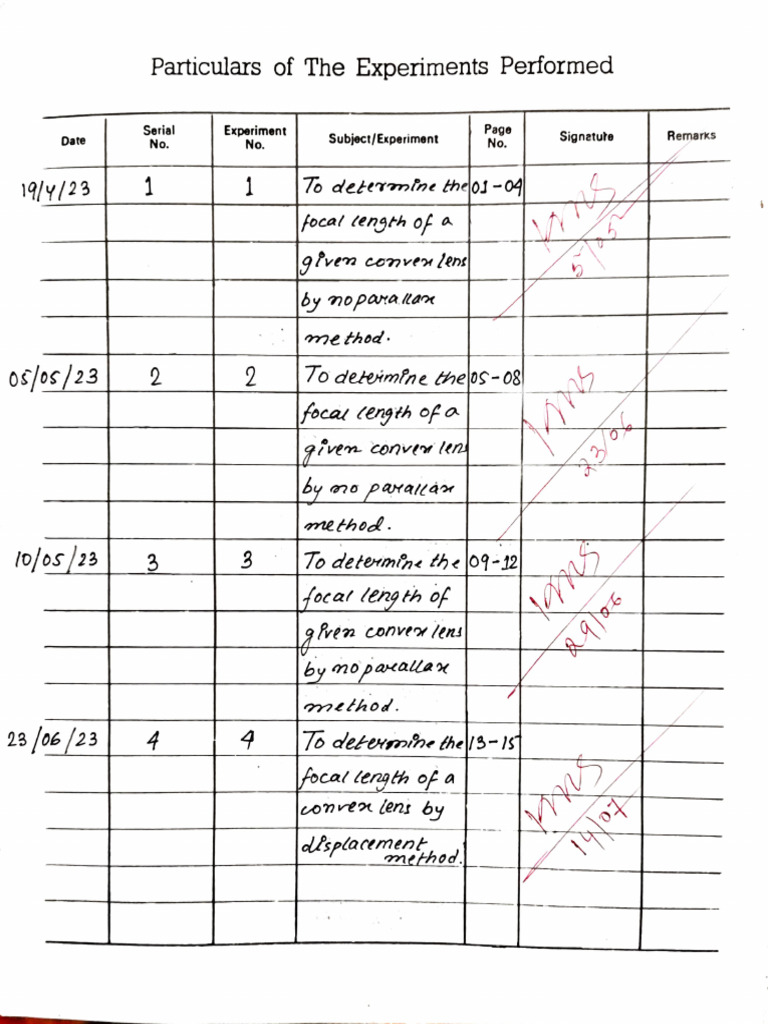 Particulars of The Experiments Performed
Date Serial No. Experiment No. Subject/Experiment Page No. Signature Remarks
19/4/23 1 1 To determine the 01-04
focal length of a
given convex lens
by no parallax
method.
5/05
05/05/23 2 2 To determine the 05-08
focal length of a
given convex lens
by no parallax
method.
23/06
10/05/23 3 3 To determine the 09-12
focal length of
given convex lens
by no parallax
method.
29/06
23/06/23 4 4 To determine the 13-15
focal length of a
convex lens by
displacement
method.
14/07